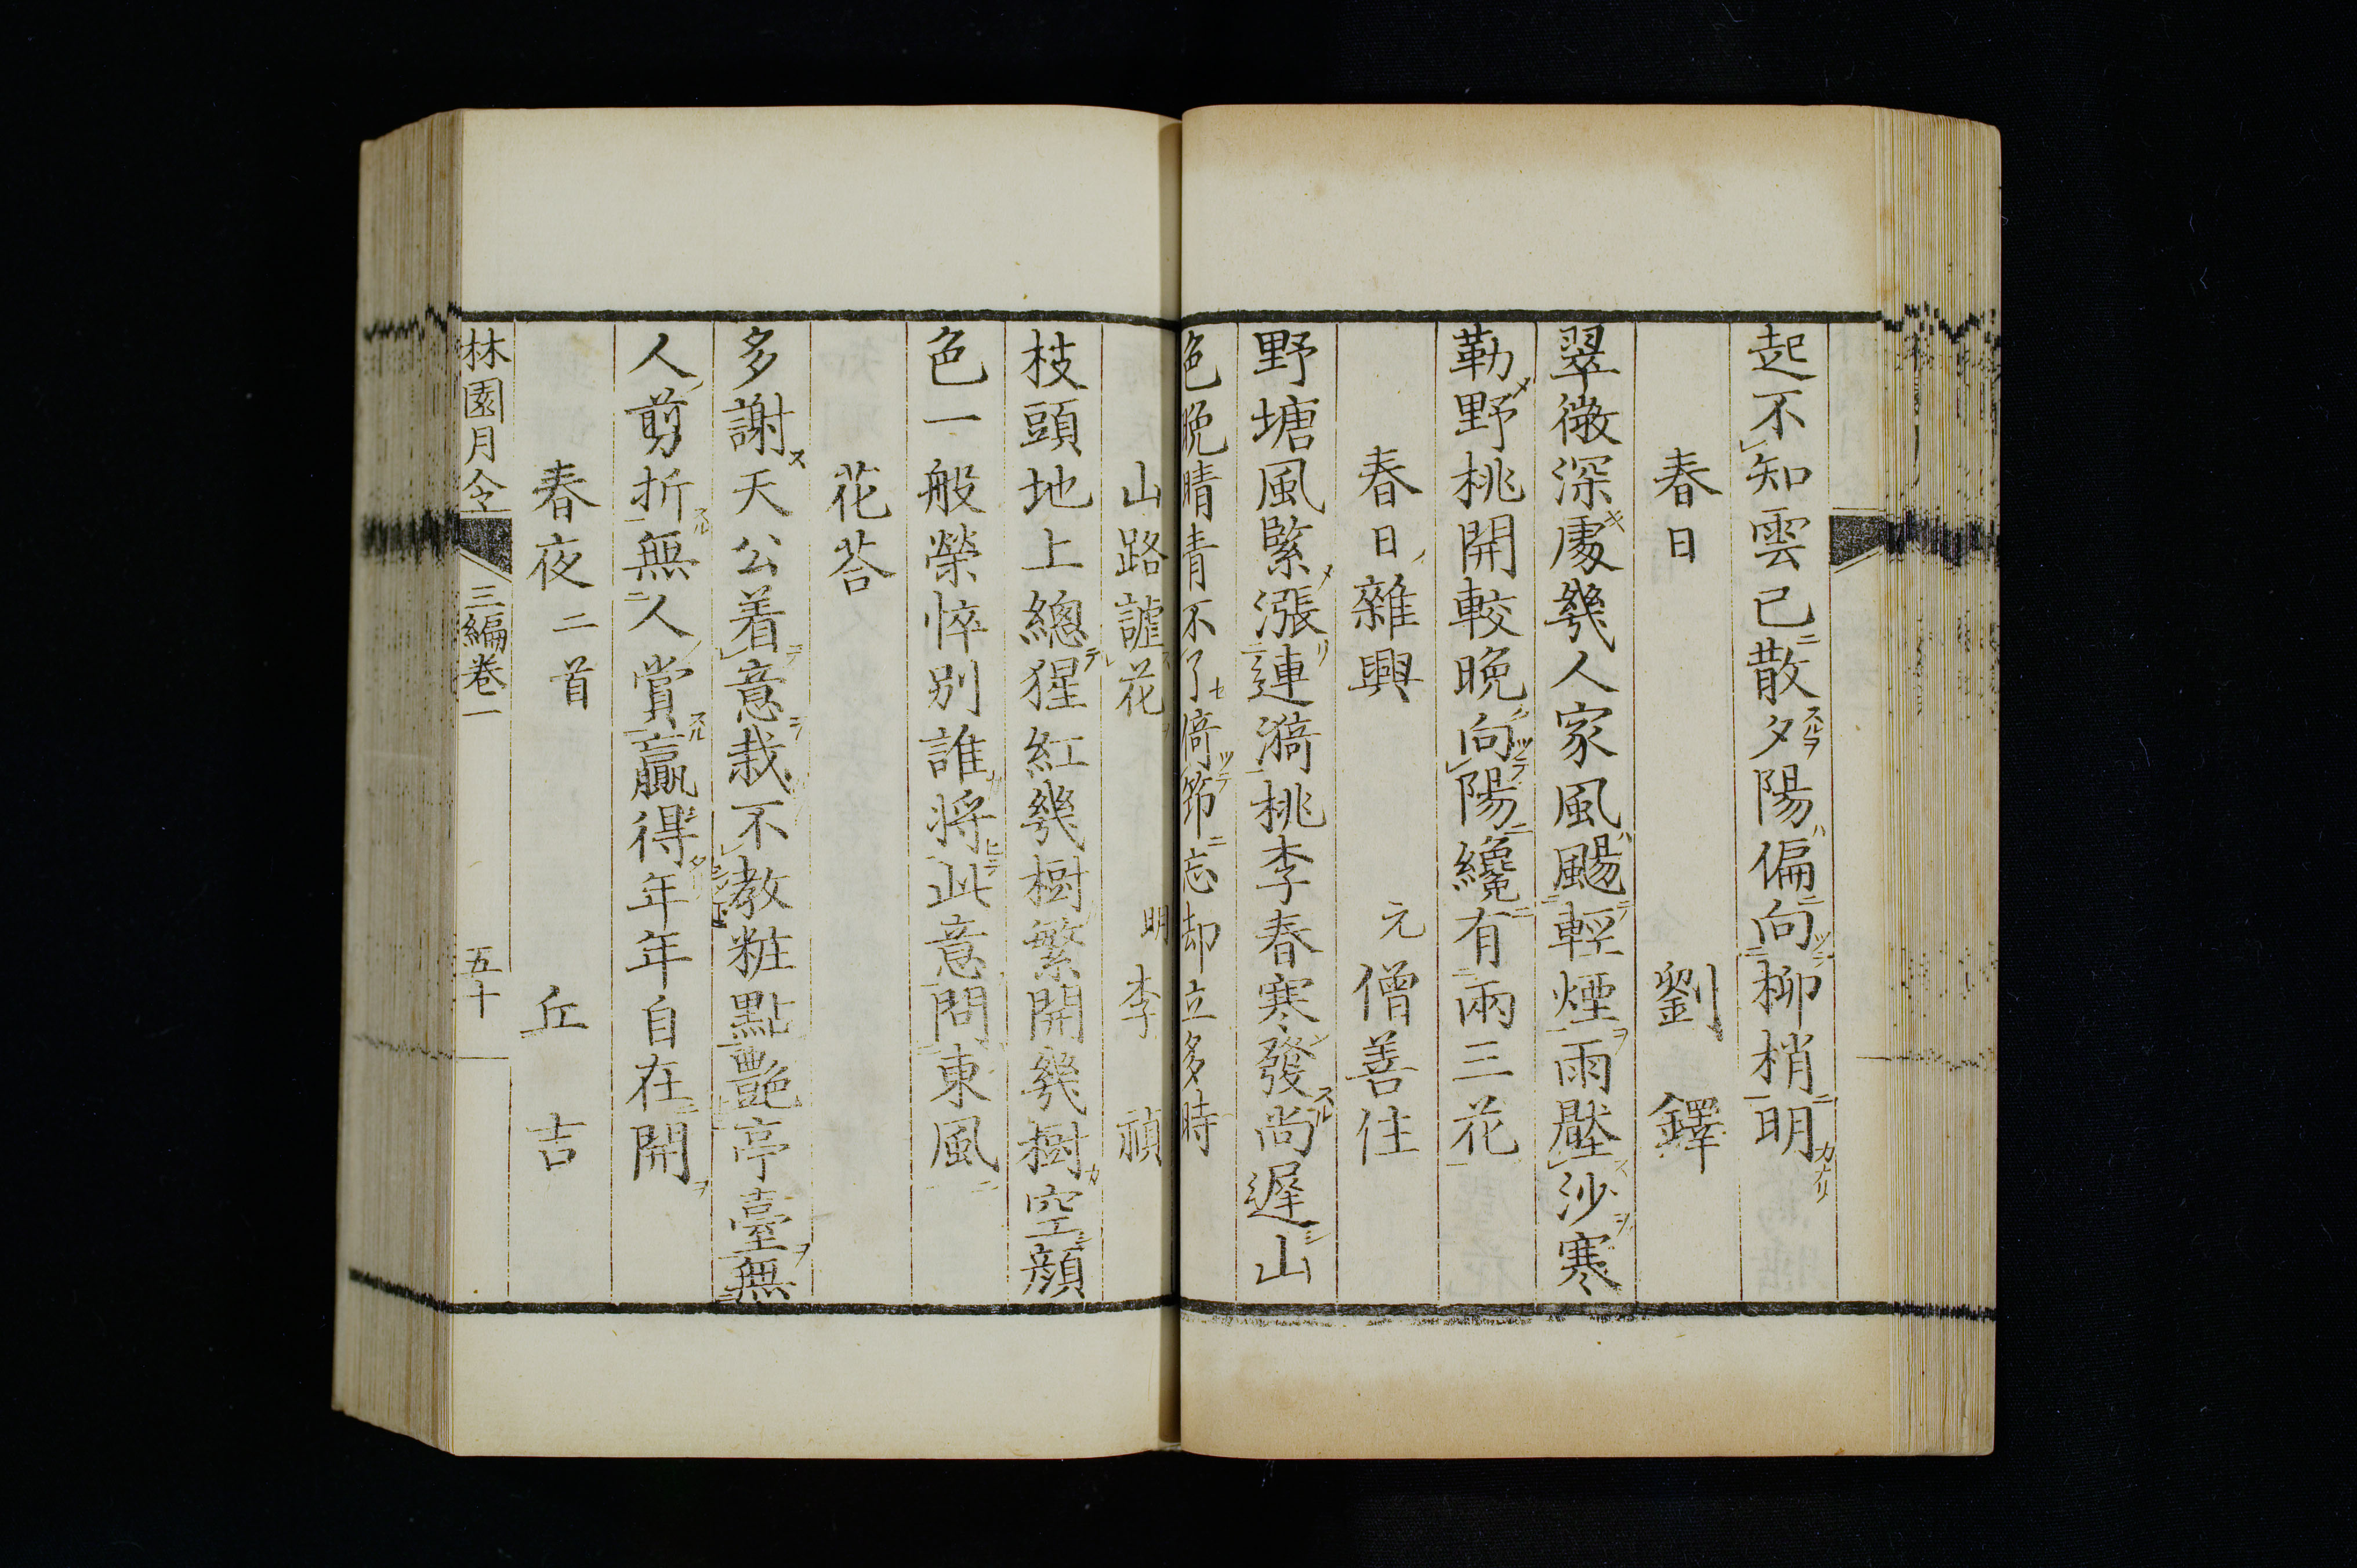 起不知雲已散夕陽偏向柳梢明
春日 劉鐸
翠微深處幾人家風颺輕煙雨壓沙寒
勒野桃開較晚向陽纔有兩三花
春日雜興 元僧善住
野塘風緊漲連漪桃李春寒發尚遲山
色晚晴青不了倚筇忘却立多時
山路謔花 明李禎
枝頭地上總猩紅幾樹繁開幾樹空顔
色一般榮悴別誰將此意問東風
花荅
多謝天公着意栽不教粧點艷亭臺無
人剪折無人賞贏得年年自在開
春夜二首 丘吉
林園月令 三編卷一 五十